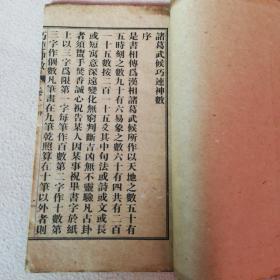 諸葛武侯巧連神數
序
是書相傳爲漢相諸葛武侯所作以天地之數五十有
五時刻之數九十有六易象之數六十有四共有二百
一十五數按二百一十五爻其中句法或詩或文或長
或短寓意深遠變化無窮判斷吉凶無不靈驗凡占卦
者須盥手焚香誠心祝告某人因某事祝畢書字於紙
上以三字爲限第一字每筆作百數第二字作十數第
三字作個數凡筆畫在九筆乾照算在十筆以外者則